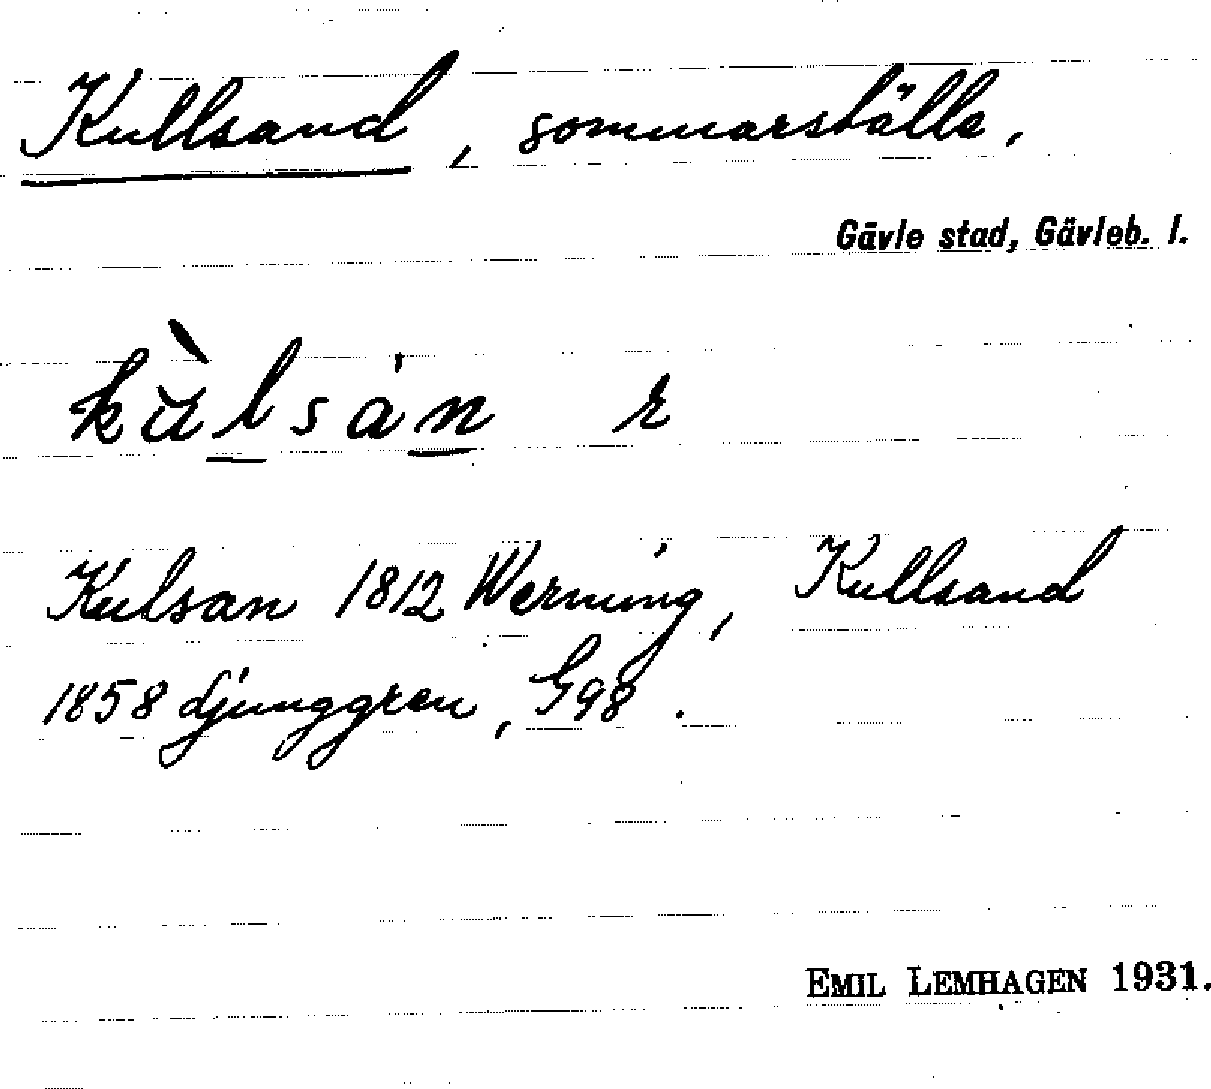 Kullsand, sommarställe.
Gävle stad, Gävleb. l.
kùlsán r
Kulsan 1812 Werning, Kullsand
1858 Ljunggren, G98.
EMIL LEMHAGEN 1931.